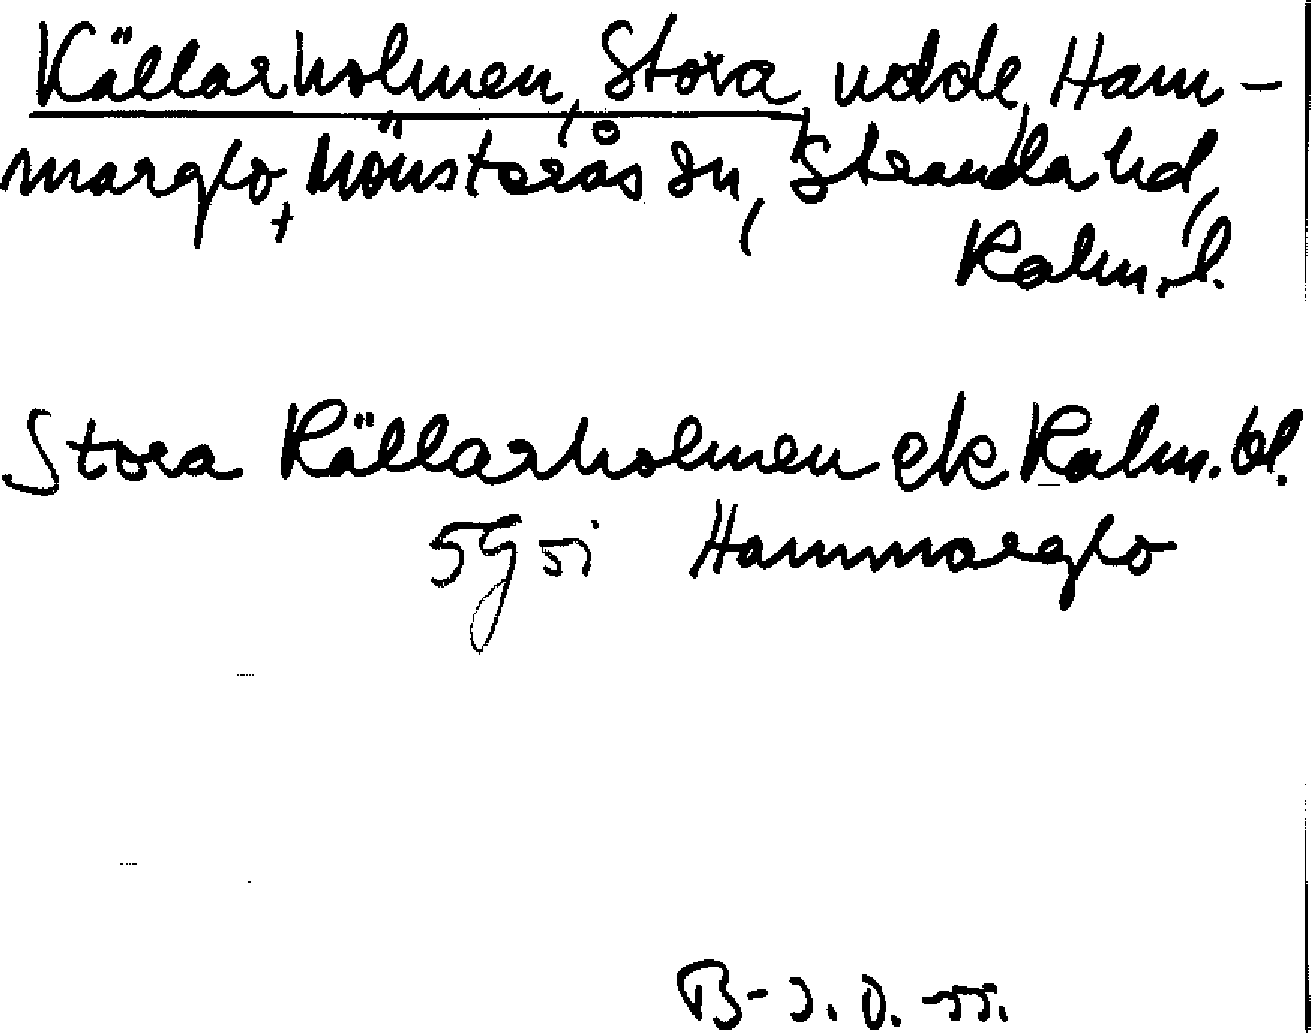 Källarholmen, Stora, udde, Ham-
marglo, Mönsterås sn, Stranda hd,
Kalm. l.
Stora Källarholmen ek Kalm. bl.
5G5i Hammarglo
B-J.O. -55.